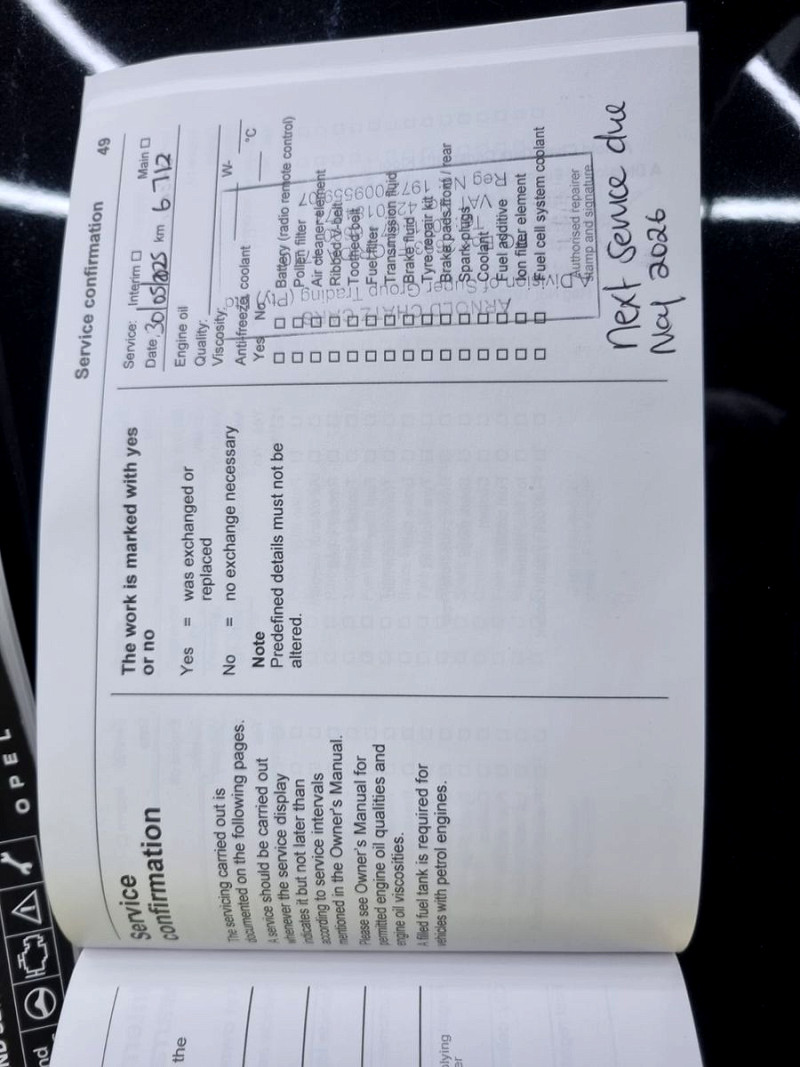 Service confirmation 49
Service
confirmation
The servicing carried out is
documented on the following pages.
A service should be carried out
whenever the service display
indicates it but not later than
according to service intervals
mentioned in the Owner's Manual.
Please see Owner's Manual for
permitted engine oil qualities and
engine oil viscosities.
A filled fuel tank is required for
vehicles with petrol engines.
The work is marked with yes
or no
Yes = was exchanged or
replaced
No = no exchange necessary
Note
Predefined details must not be
altered.
Service: Interim □ Main □
Date 30/05/2025 km 6 712
Engine oil
Quality:
Viscosity: W-
Anti-freeze, coolant °C
Yes No
□ □ Battery (radio remote control)
□ □ Pollen filter
□ □ Air cleaner element
□ □ Ribbed V-belt
□ □ Toothed belt
□ □ Fuel filter
□ □ Transmission fluid
□ □ Brake fluid
□ □ Tyre repair kit
□ □ Brake pads front / rear
□ □ Spark plugs
□ □ Coolant
□ □ Fuel additive
□ □ Ion filter element
□ □ Fuel cell system coolant
Authorised repairer
stamp and signature
ARNOLD CHATZ CARS
Division of Super Group Trading (Pty) Ltd
Next Service due
May 2026
OPEL
the